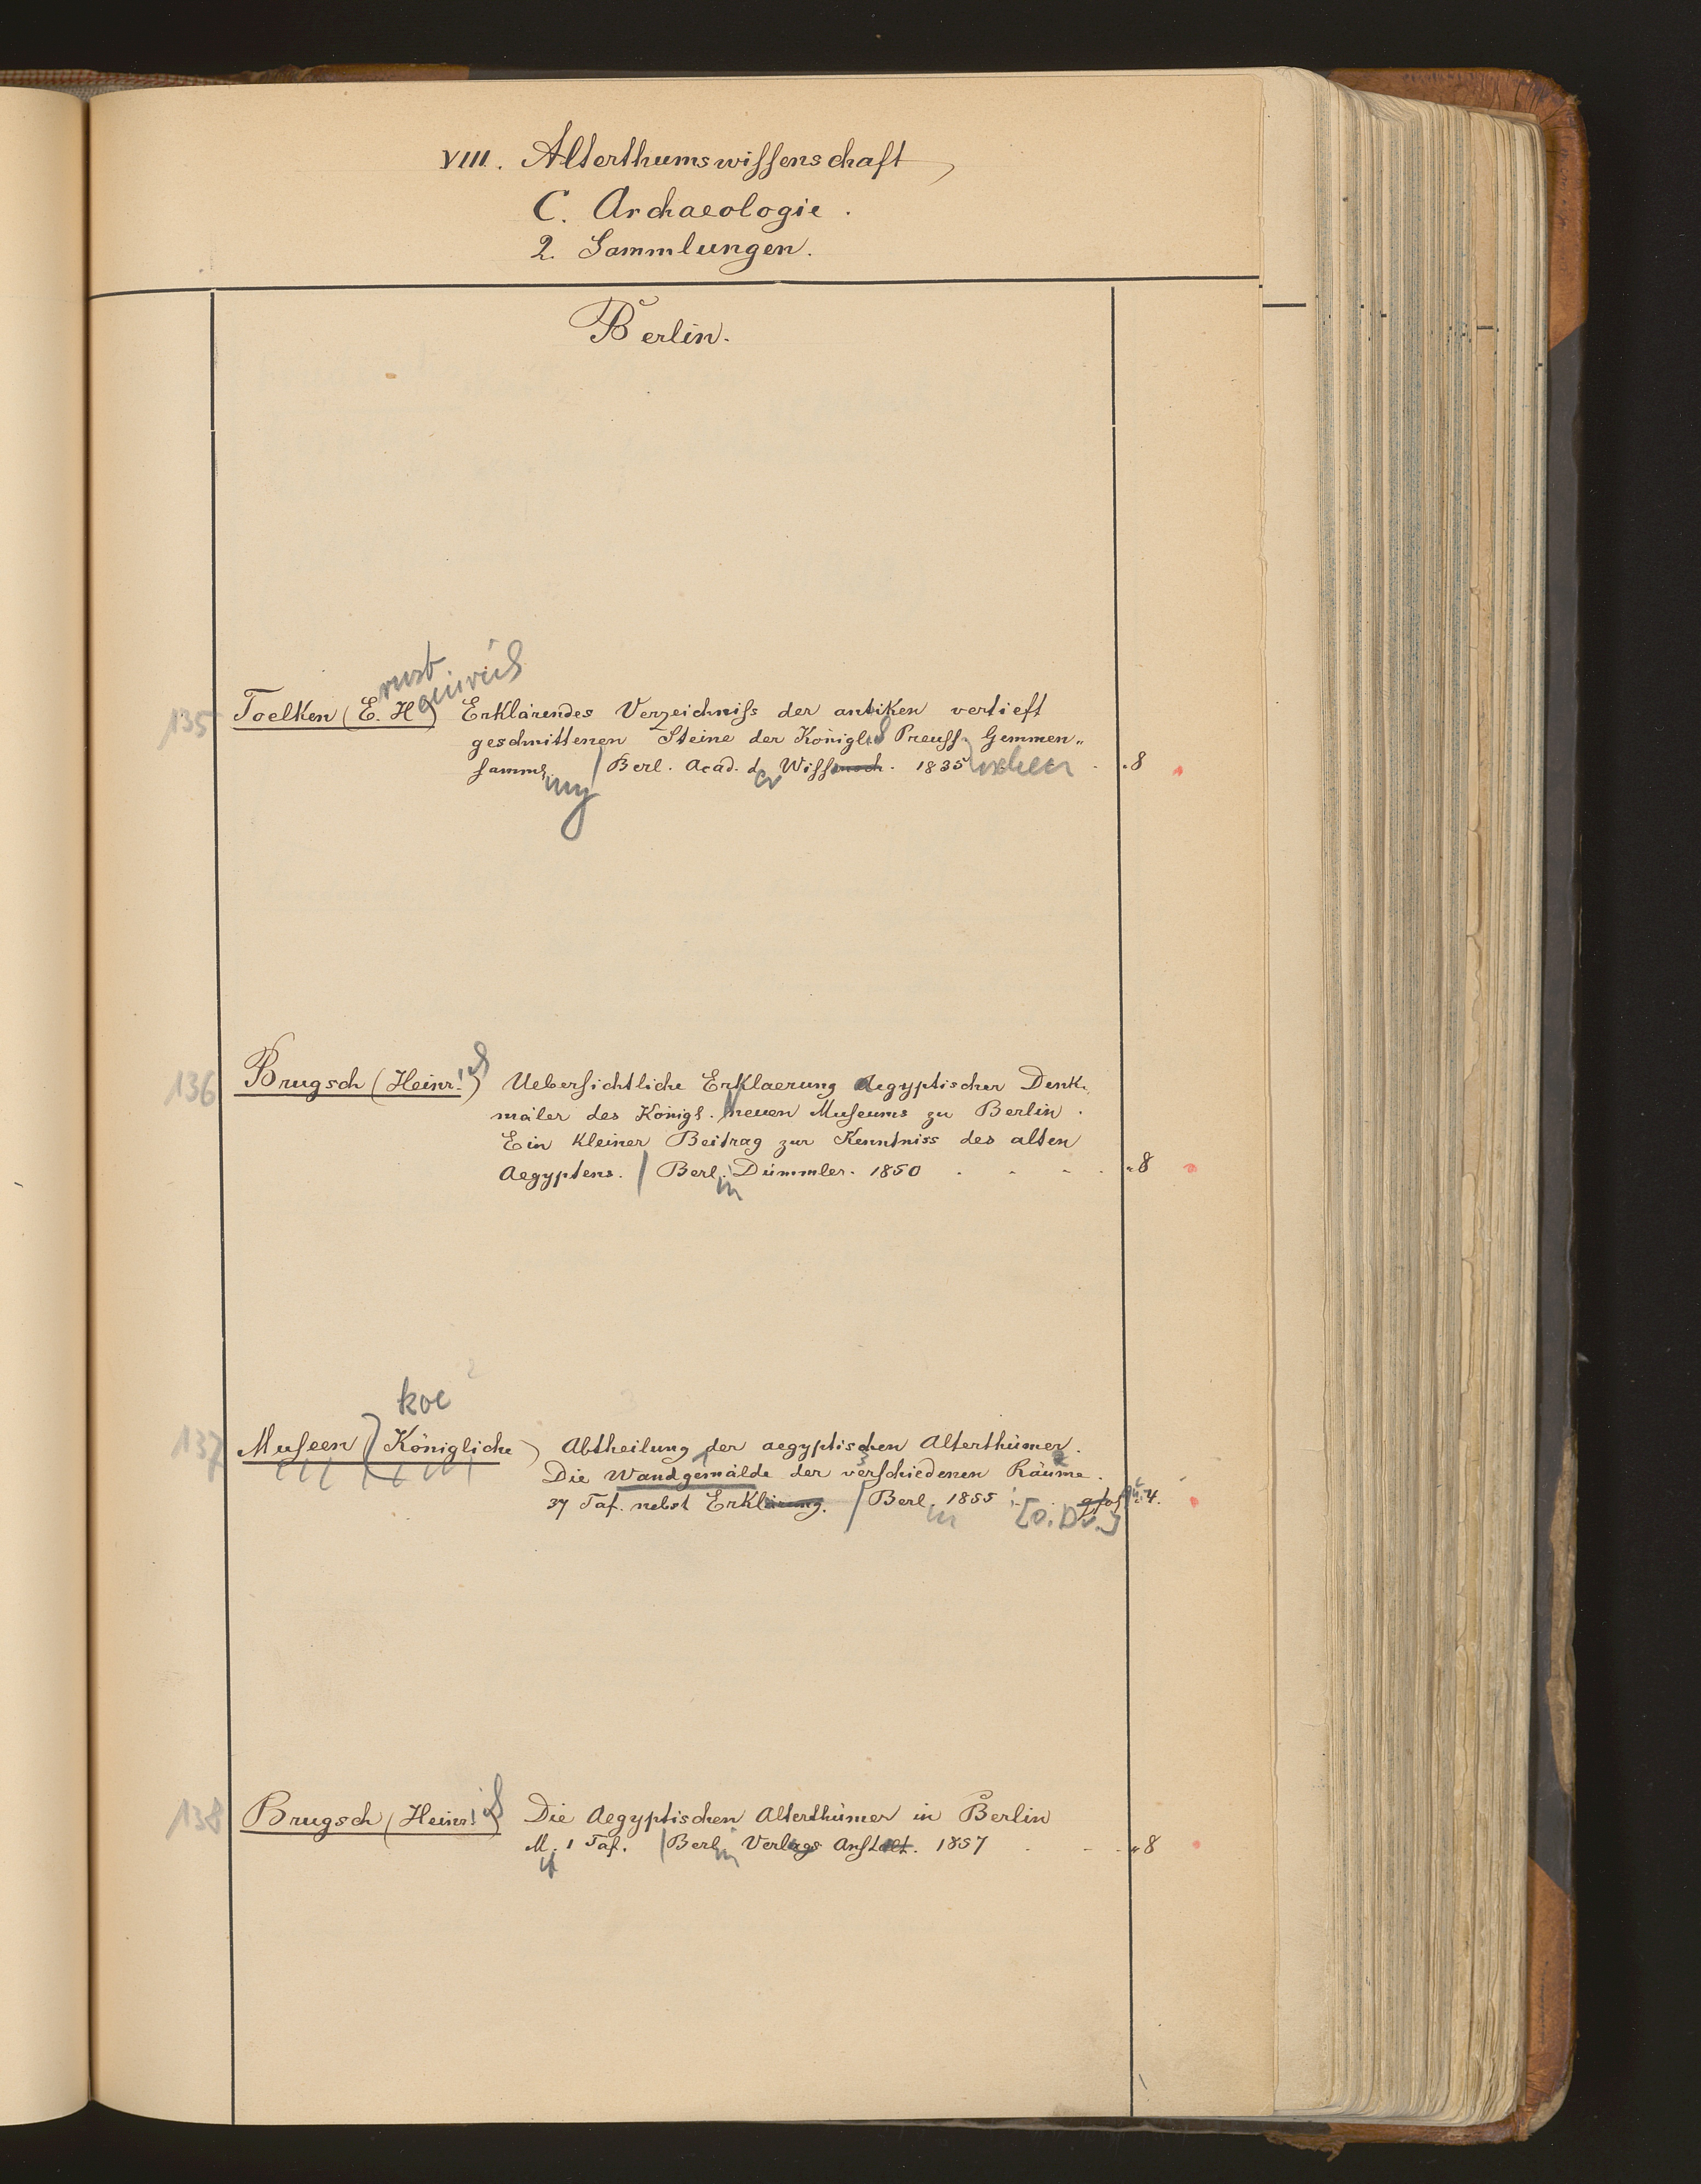 VIII. Alterthumswissenschaft,
C. Archaeologie.
2. Sammlungen.
Berlin.
rnst
einrich
135 Toelken (E. H) Erklärendes Verzeichniss der antiken vertieft
geschnittenen Steine der Königlich Preuss. Gemmen„
samml. / Berl. Acad. d. Wissensch. 1835 „8
ung er uschen
ich
136 Brugsch (Heinr.) Uebersichtliche Erklaerung Aegyptischer Denk„
mäler des Königl. neuen Museums zu Berlin.
Ein kleiner Beitrag zur Kenntniss des alten
Aegyptens. / Berl. Dümmler. 1850 „8
in
koe
137 Museen (Königliche) Abtheilung der aegyptischen Alterthümer.
Die Wandgemälde der verschiedenen Räume.
37 Taf. nebst Erklärung. / Berl. 1855 4.
in [o. Dr.]
ich
138 Brugsch (Heinr.) Die Aegyptischen Alterthümer in Berlin
M. 1 Taf. / Berl. Verlags Anstalt. 1857 „8
it in